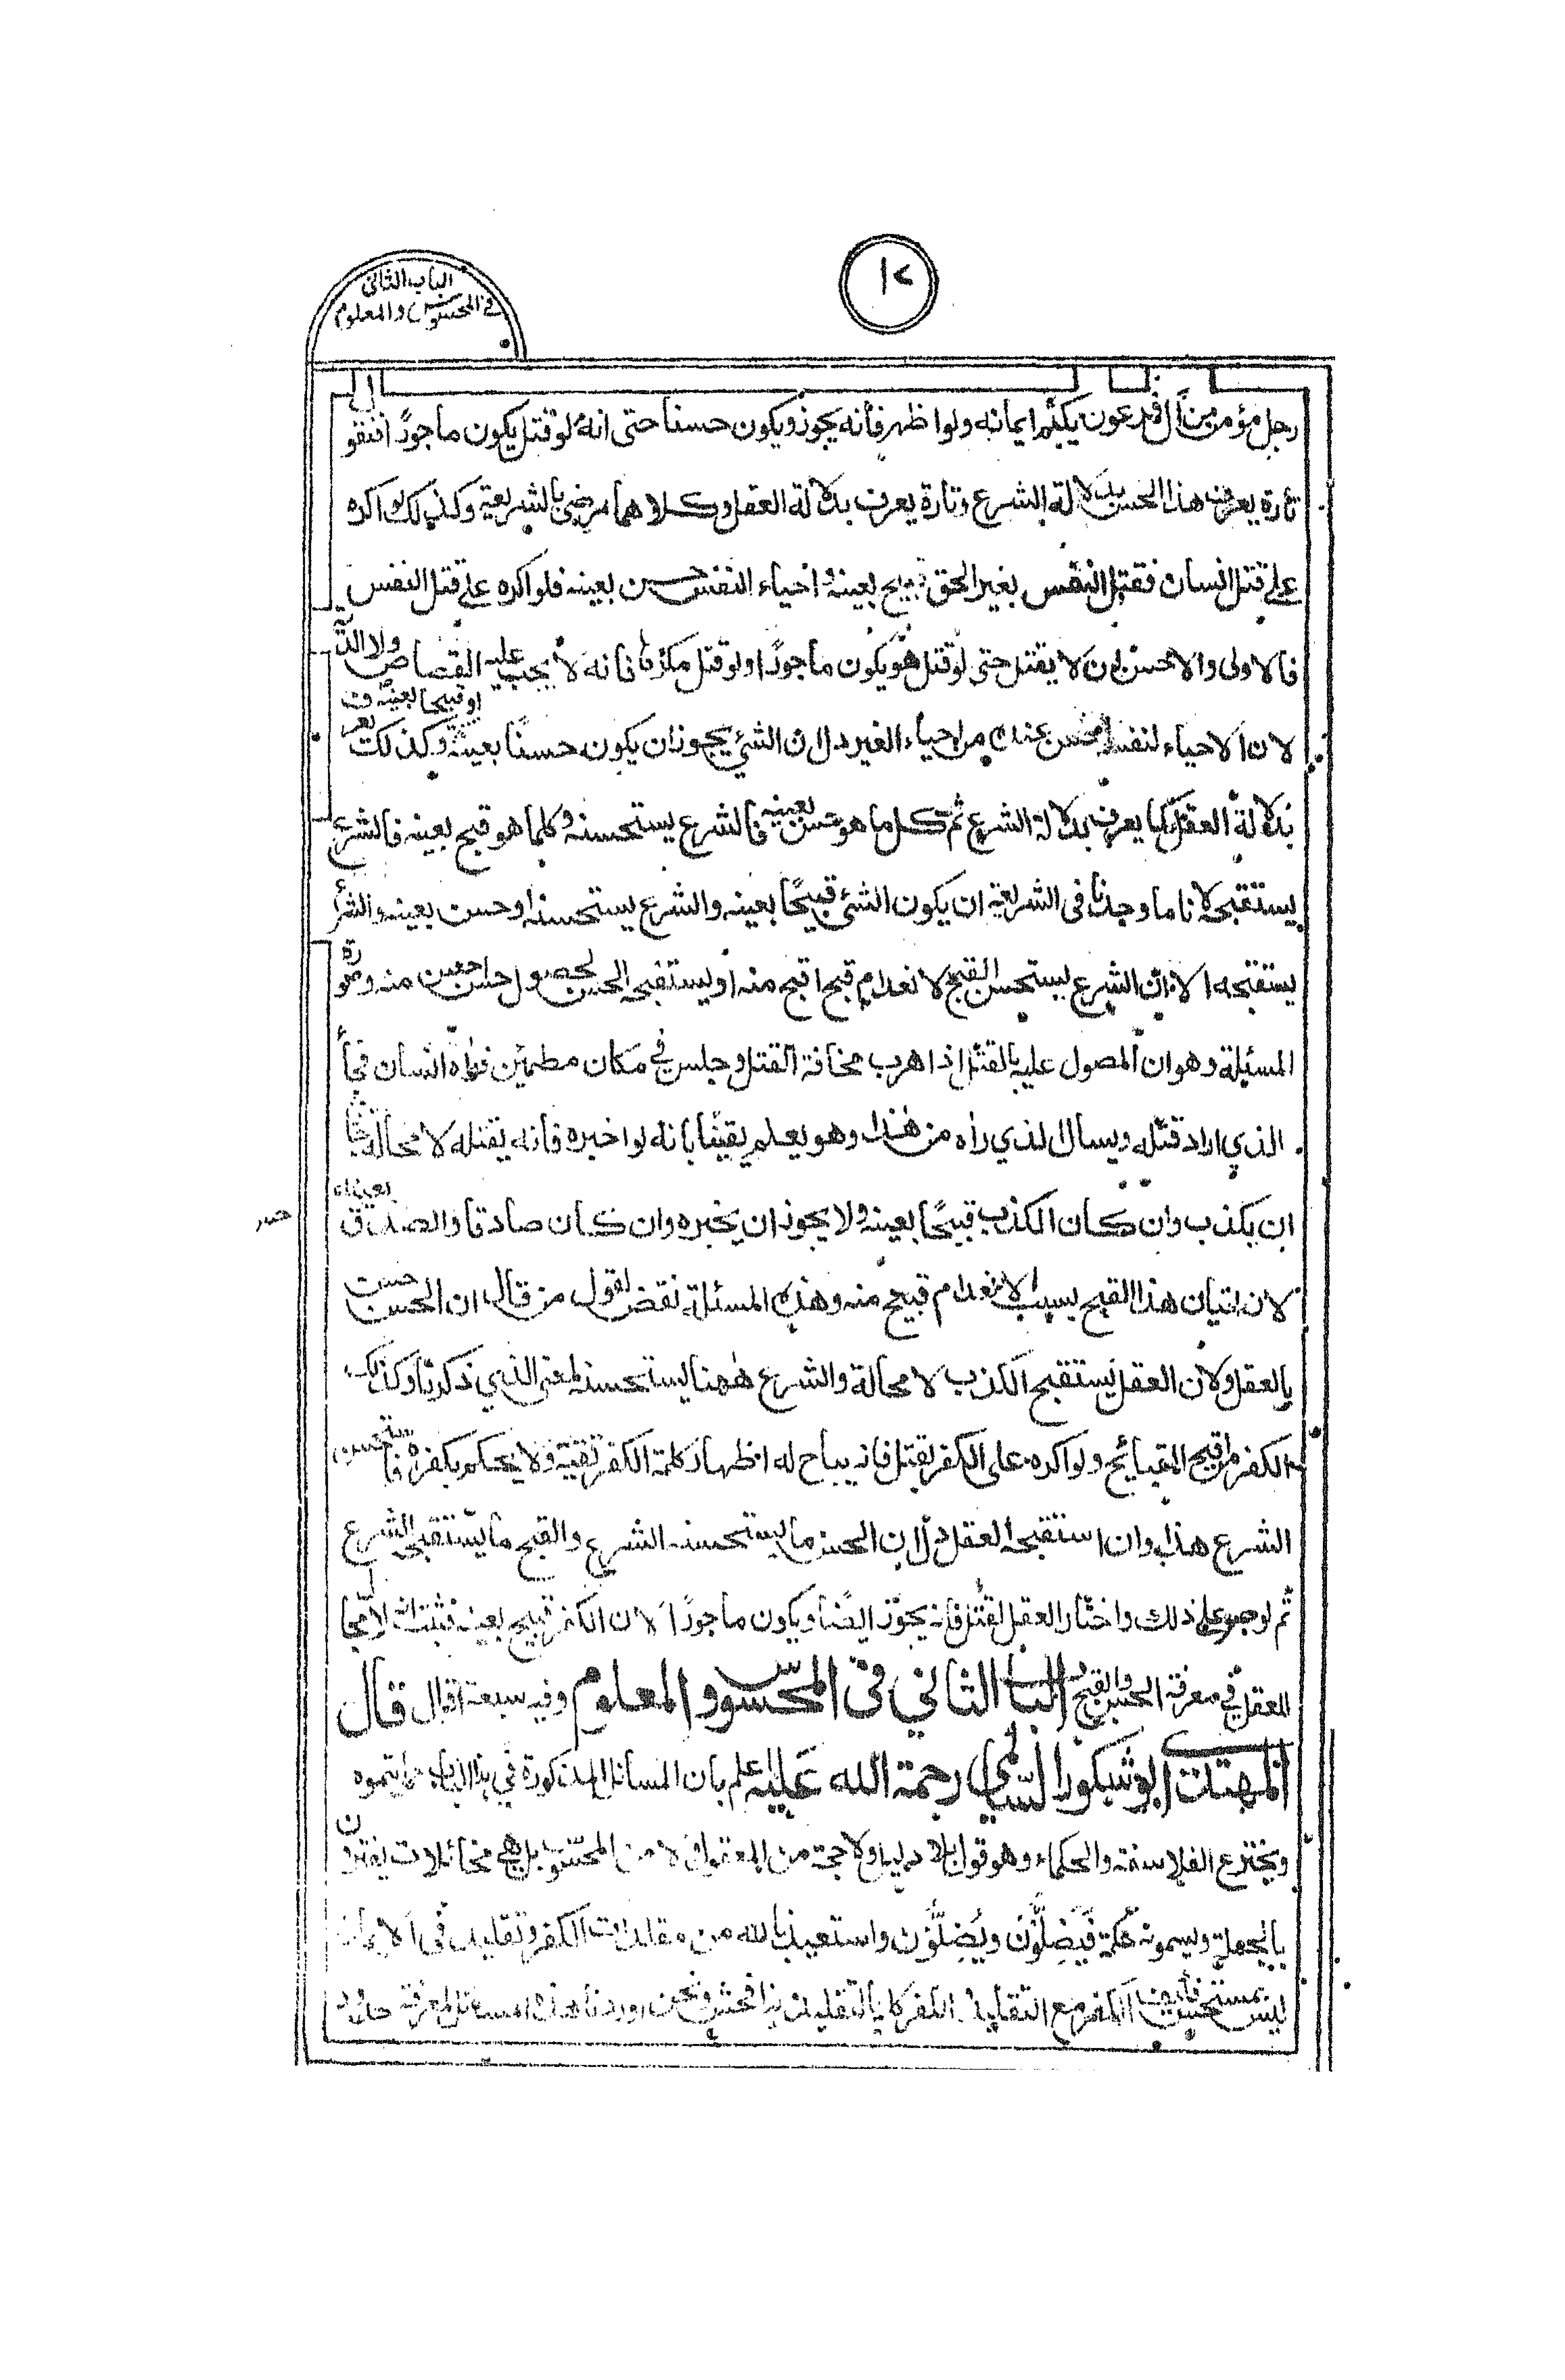 ١٢
الباب الثانى
فى المحسوس والمعلوم
رجل مؤمن من آل فرعون يكتم ايمانه ولو اظهر فأنه يجوز ويكون حسنا حتى انه لو قتل يكون ماجورًا افنقو
ل تارة يعرف هذا الحسن بدلالة الشرع وتارة يعرف بدلالة العقل وكلاهما مرضى بالشريعة وكذلك لو اكره
على قتل انسان فقتل النفس بغير الحق قبيح بعينه و احياء النفس حسن بعينه فلو اكره على قتل النفس
فالاولى والاحسن بان لا يقتل حتى لو قتل هو يكون ماجورًا ولو قتل مكرها فانه لا يجب عليه القصاص ولا الدية
لان الاحياء لنفسه احسن عنده من احياء الغير دل ان الشئ يجوز ان يكون حسنًا بعينه او قبيحا بعينه وكذلك يعرف
بدلالة العقل كما يعرف بدلالة الشرع ثم كل ما هو حسن بعينه فالشرع يستحسنه وكلما هو قبيح بعينه فالشرع
يستقبحه لانا ما وجدنا فى الشريعة ان يكون الشئ قبيحًا بعينه والشرع يستحسنه او حسن بعينه والشرع
يستقبحه الا ان الشرع يستحسن القبيح لانعدام قبح اقبح منه او يستقبح الحسن لحصول حسن احسن منه وصورة
المسئلة وهو ان المصول عليه بالقتل اذا هرب مخافة القتل وجلس فى مكان مطمئن فراه انسان فجأ
الذي اراد قتله ويسال الذي راه من هذا وهو يعلم يقينًا بانه لو اخبره فانه يقتله لا محالة
ان يكذب وان كان الكذب قبيحًا بعينه ولا يجوز ان يخبره وان كان صادقا والصدق بعينه
حسن
لان اتيان هذا القبيح بسبب لانعدام قبيح منه وهذه المسئلة نقض لقول من قال ان الحسن حسن
بالعقل ولان العقل يستقبح الكذب لا محالة والشرع ههنا يستحسنه لمعنى الذي ذكرنا وكذلك
الكفر من اقبح القبائح ولو اكره على الكفر بقتل فانه يباح له اظهار كلمة الكفر تقية ولا يحكم بكفره فاستحسن
الشرع هذا وان استقبحه العقل دل ان الحسن ما يستحسنه الشرع والقبح ما يستقبحه الشرع
ثم لو صبر على ذلك واختار العقل لقتل فانه يجوز ايضًا ويكون ماجورًا لان الكفر قبيح بعينه فثبت ان لا مجال
للعقل فى معرفة الحسن والقبح الباب الثاني فى المحسوس والمعلوم وفيه سبعة اقوال قال
المهتدى ابو شكور السالمي رحمة الله عليه اعلم بان المسائل المذكورة في هذا الباب مما يتموه
ويخترع الفلاسفة والحكماء وهو قول بلا دليل ولا حجة من المعقول لا من المحسوس بل هى مخائلات يفترون
بالجهلة ويسمونه حكمة فَيَضِلُّوْنَ ويُضِلُّوْن واستعيذ بالله من مقلدات الكفر وتقليد فى الايمان
ليس بمستحسن فكيف الكفر مع التقليد الكفر كله بالتقليد هذا فحش ونحن اوردنا هذه المسائل لمعرفة حدود